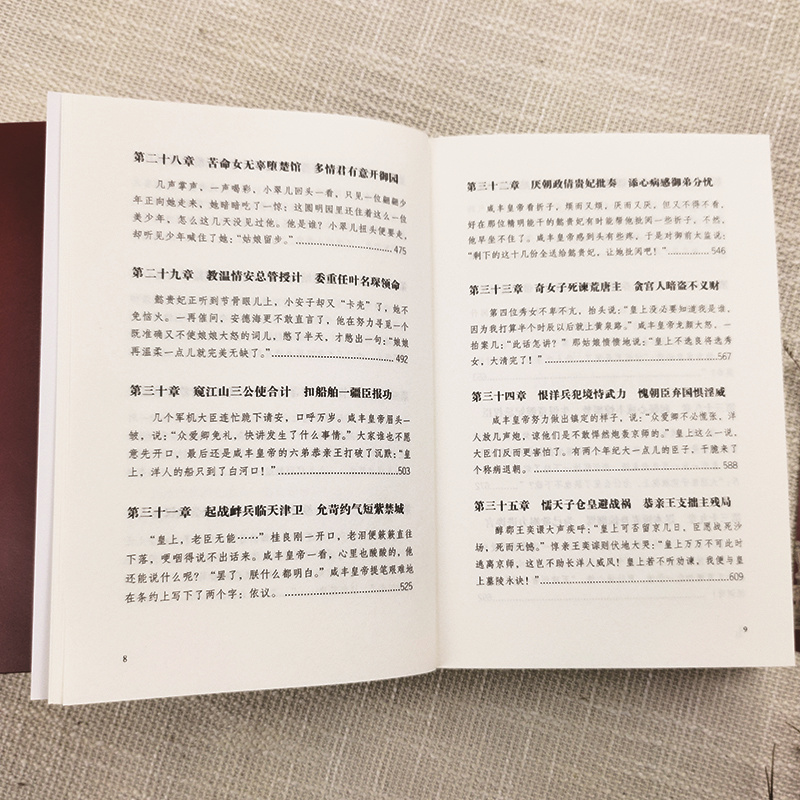 第二十八章 苦命女无辜堕楚馆 多情君有意开御园
几声掌声，一声喝彩，小翠儿回头一看，只见一位翩翩少
年正向她走来，她暗暗吃了一惊：这圆明园里还住着这么一位
美少年，怎么这几天没见过他。他是谁？小翠儿扭头便要走，
却听见少年喊住了她：“姑娘留步。”475
第二十九章 教温情安总管授计 委重任叶名琛领命
懿贵妃正听到节骨眼儿上，小安子却又“卡壳”了，她不
免恼火。一再催问，安德海更不敢直言了，他在努力寻觅一个
既准确又不使娘娘大怒的词儿，憋了半天，才憋出一句：“娘娘
再温柔一点儿就完美无缺了。”492
第三十章 窥江山三公使合计 扣船舶一疆臣报功
几个军机大臣连忙跪下请安，口呼万岁。咸丰皇帝眉头一
皱，说：“众爱卿免礼，快讲发生了什么事情。”大家谁也不愿
意先开口，最后还是咸丰皇帝的六弟恭亲王打破了沉默：“皇
上，洋人的船只到了白河口！”503
第三十一章 起战衅兵临天津卫 允苛约气短紫禁城
“皇上，老臣无能……”桂良刚一开口，老泪便簌簌直往
下落，哽咽得说不出话来。咸丰皇帝一看，心里也酸酸的，他
还能说什么呢？“罢了，朕什么都明白。”咸丰皇帝提笔艰难地
在条约上写下了两个字：依议。525
8
第三十二章 厌朝政倩贵妃批奏 添心病感御弟分忧
咸丰皇帝看折子，烦而又烦，厌而又厌，但又不得不看，
好在那位精明能干的懿贵妃有时能帮他批阅一些折子，不然，
他早坐不住了。咸丰皇帝感到头有些疼，于是对御前太监说：
“剩下的这十几份全送给懿贵妃，让她批阅吧！”546
第三十三章 奇女子死谏荒唐主 贪官人暗盗不义财
第四位秀女不卑不亢，抬头说：“皇上没必要知道我是谁，
因为我打算半个时辰以后就上黄泉路。”咸丰皇帝龙颜大怒，一
拍案几：“此话怎讲？”那姑娘愤愤地说：“皇上不选良将选秀
女，大清完了！”567
第三十四章 恨洋兵犯境恃武力 愧朝臣弃国惧淫威
咸丰皇帝努力做出镇定的样子，说：“众爱卿不必慌张，洋
人放几声炮，谅他们是不敢悍然炮轰京师的。”皇上这么一说，
大臣们反而更害怕了。有两个年纪大一点儿的臣子，干脆来了
个称病退朝。588
第三十五章 懦天子仓皇避战祸 恭亲王支拙主残局
醇郡王奕譞大声疾呼：“皇上可否留京几日，臣愿战死沙
场，死而无憾。”惇亲王奕谅则伏地大哭：“皇上万万不可此时
逃离京师，这岂不助长洋人威风！皇上若不听劝谏，我便与皇
上墓陵永诀！”609
9